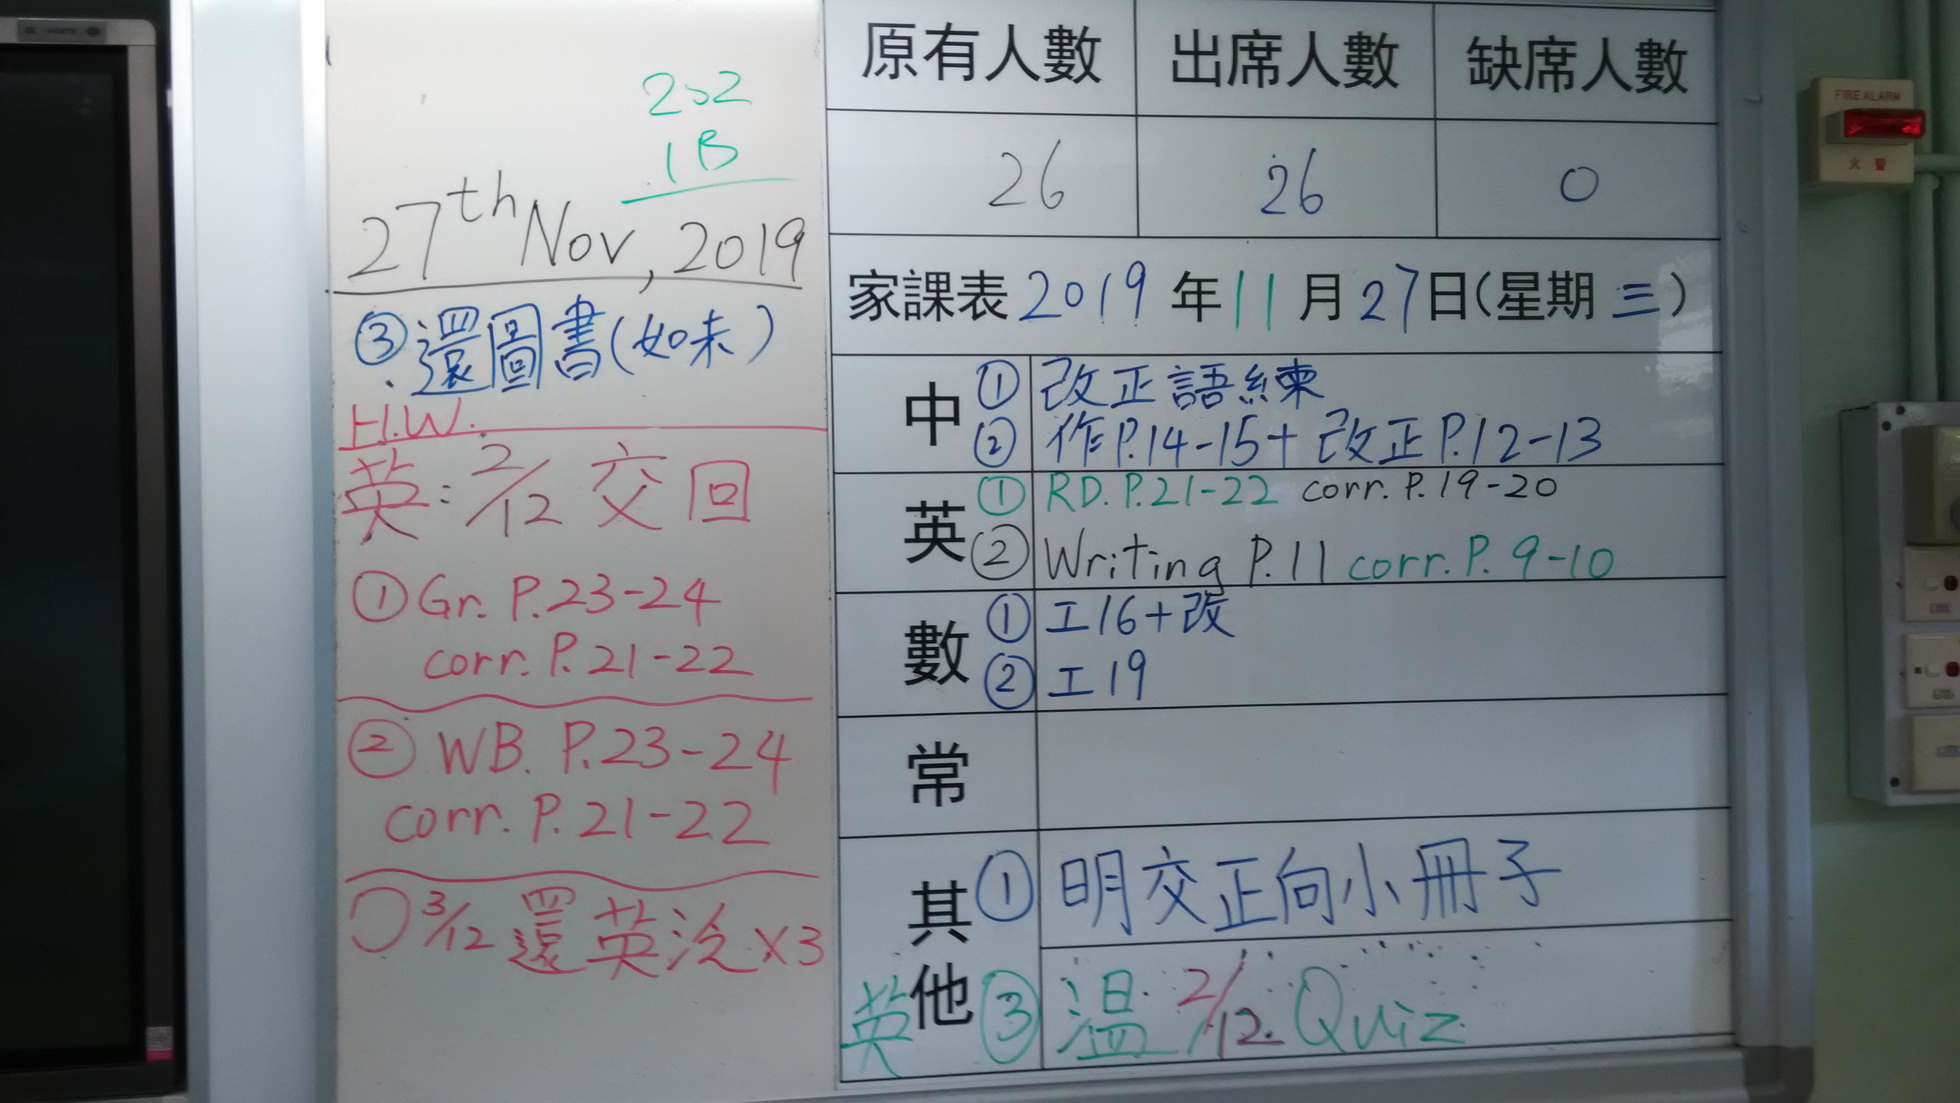 202
1B
27th Nov, 2019
③還圖書(如未)
H.W.
英: 2/12 交回
①Gr. P.23-24
corr. P.21-22
② WB. P.23-24
corr. P.21-22
3/12 還英 x3
原有人數 出席人數 缺席人數
26 26 0
家課表 2019 年 11 月 27 日(星期 三)
中 ① 改正語練
② 作P.14-15+改正P.12-13
英 ① RD. P.21-22 corr. P.19-20
② Writing P.11 corr. P. 9-10
數 ① 工16+改
② 工19
常
其他 ① 明交正向小冊子
英 ③ 溫 2/12. Quiz
FIRE ALARM
火警